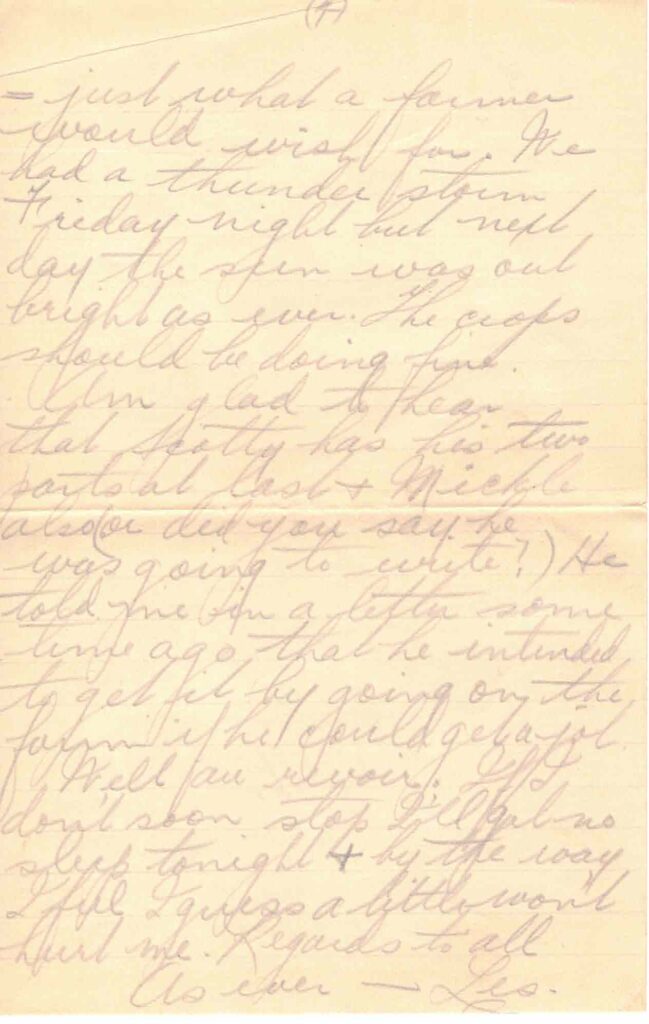 (4)
= just what a farmer
would wish for. We
had a thunder storm
Friday night but next
day the sun was out
bright as ever. The crops
should be doing fine.
Am glad to hear
that Scotty has his two
parts at last + Mickle
also (or did you say he
was going to write?) He
told me in a letter some
time ago that he intended
to get it by going on the
farm if he could get a job.
Well au revoir. If I
don't soon stop I'll get no
sleep tonight + by the way
I feel I guess a little won't
hurt me. Regards to all
As ever — Les.